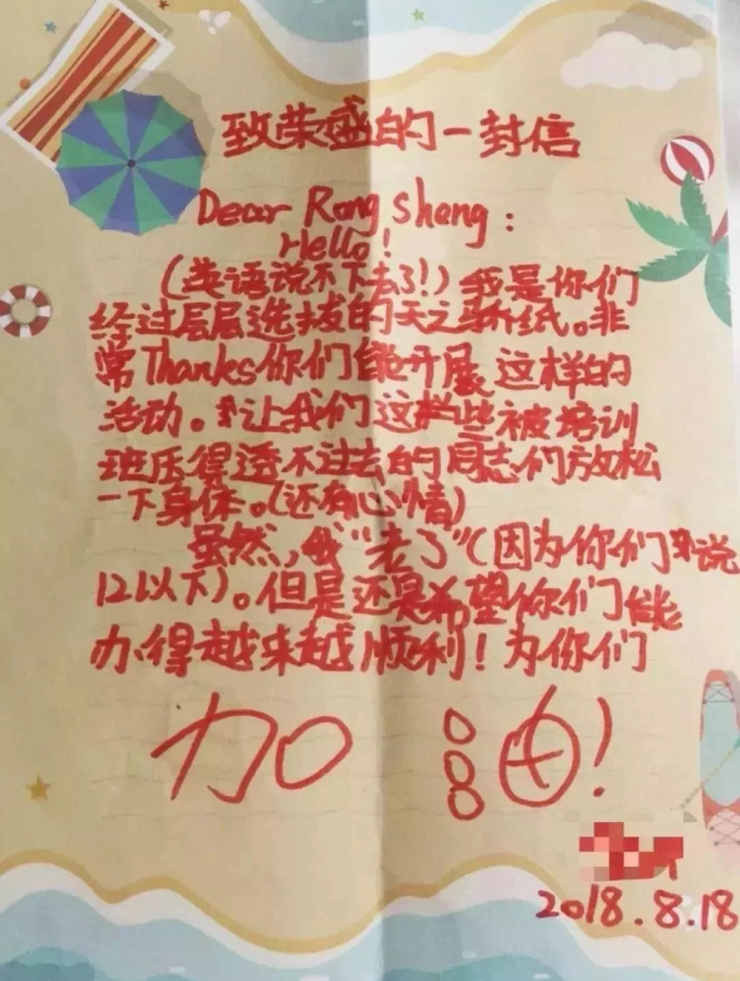 致荣盛的一封信
Dear Rong sheng:
Hello!
(英语说不下去了!)我是你们
经过层层选拔的天之骄纸。非
常Thanks你们能开展这样的
活动。让我们这些被培训
班压得透不过去的同志们放松
一下身体。(还有心情)
虽然,我"老了"(因为你们来说
12以下)。但是还是希望你们能
办得越来越顺利!为你们
加油!
2018.8.18